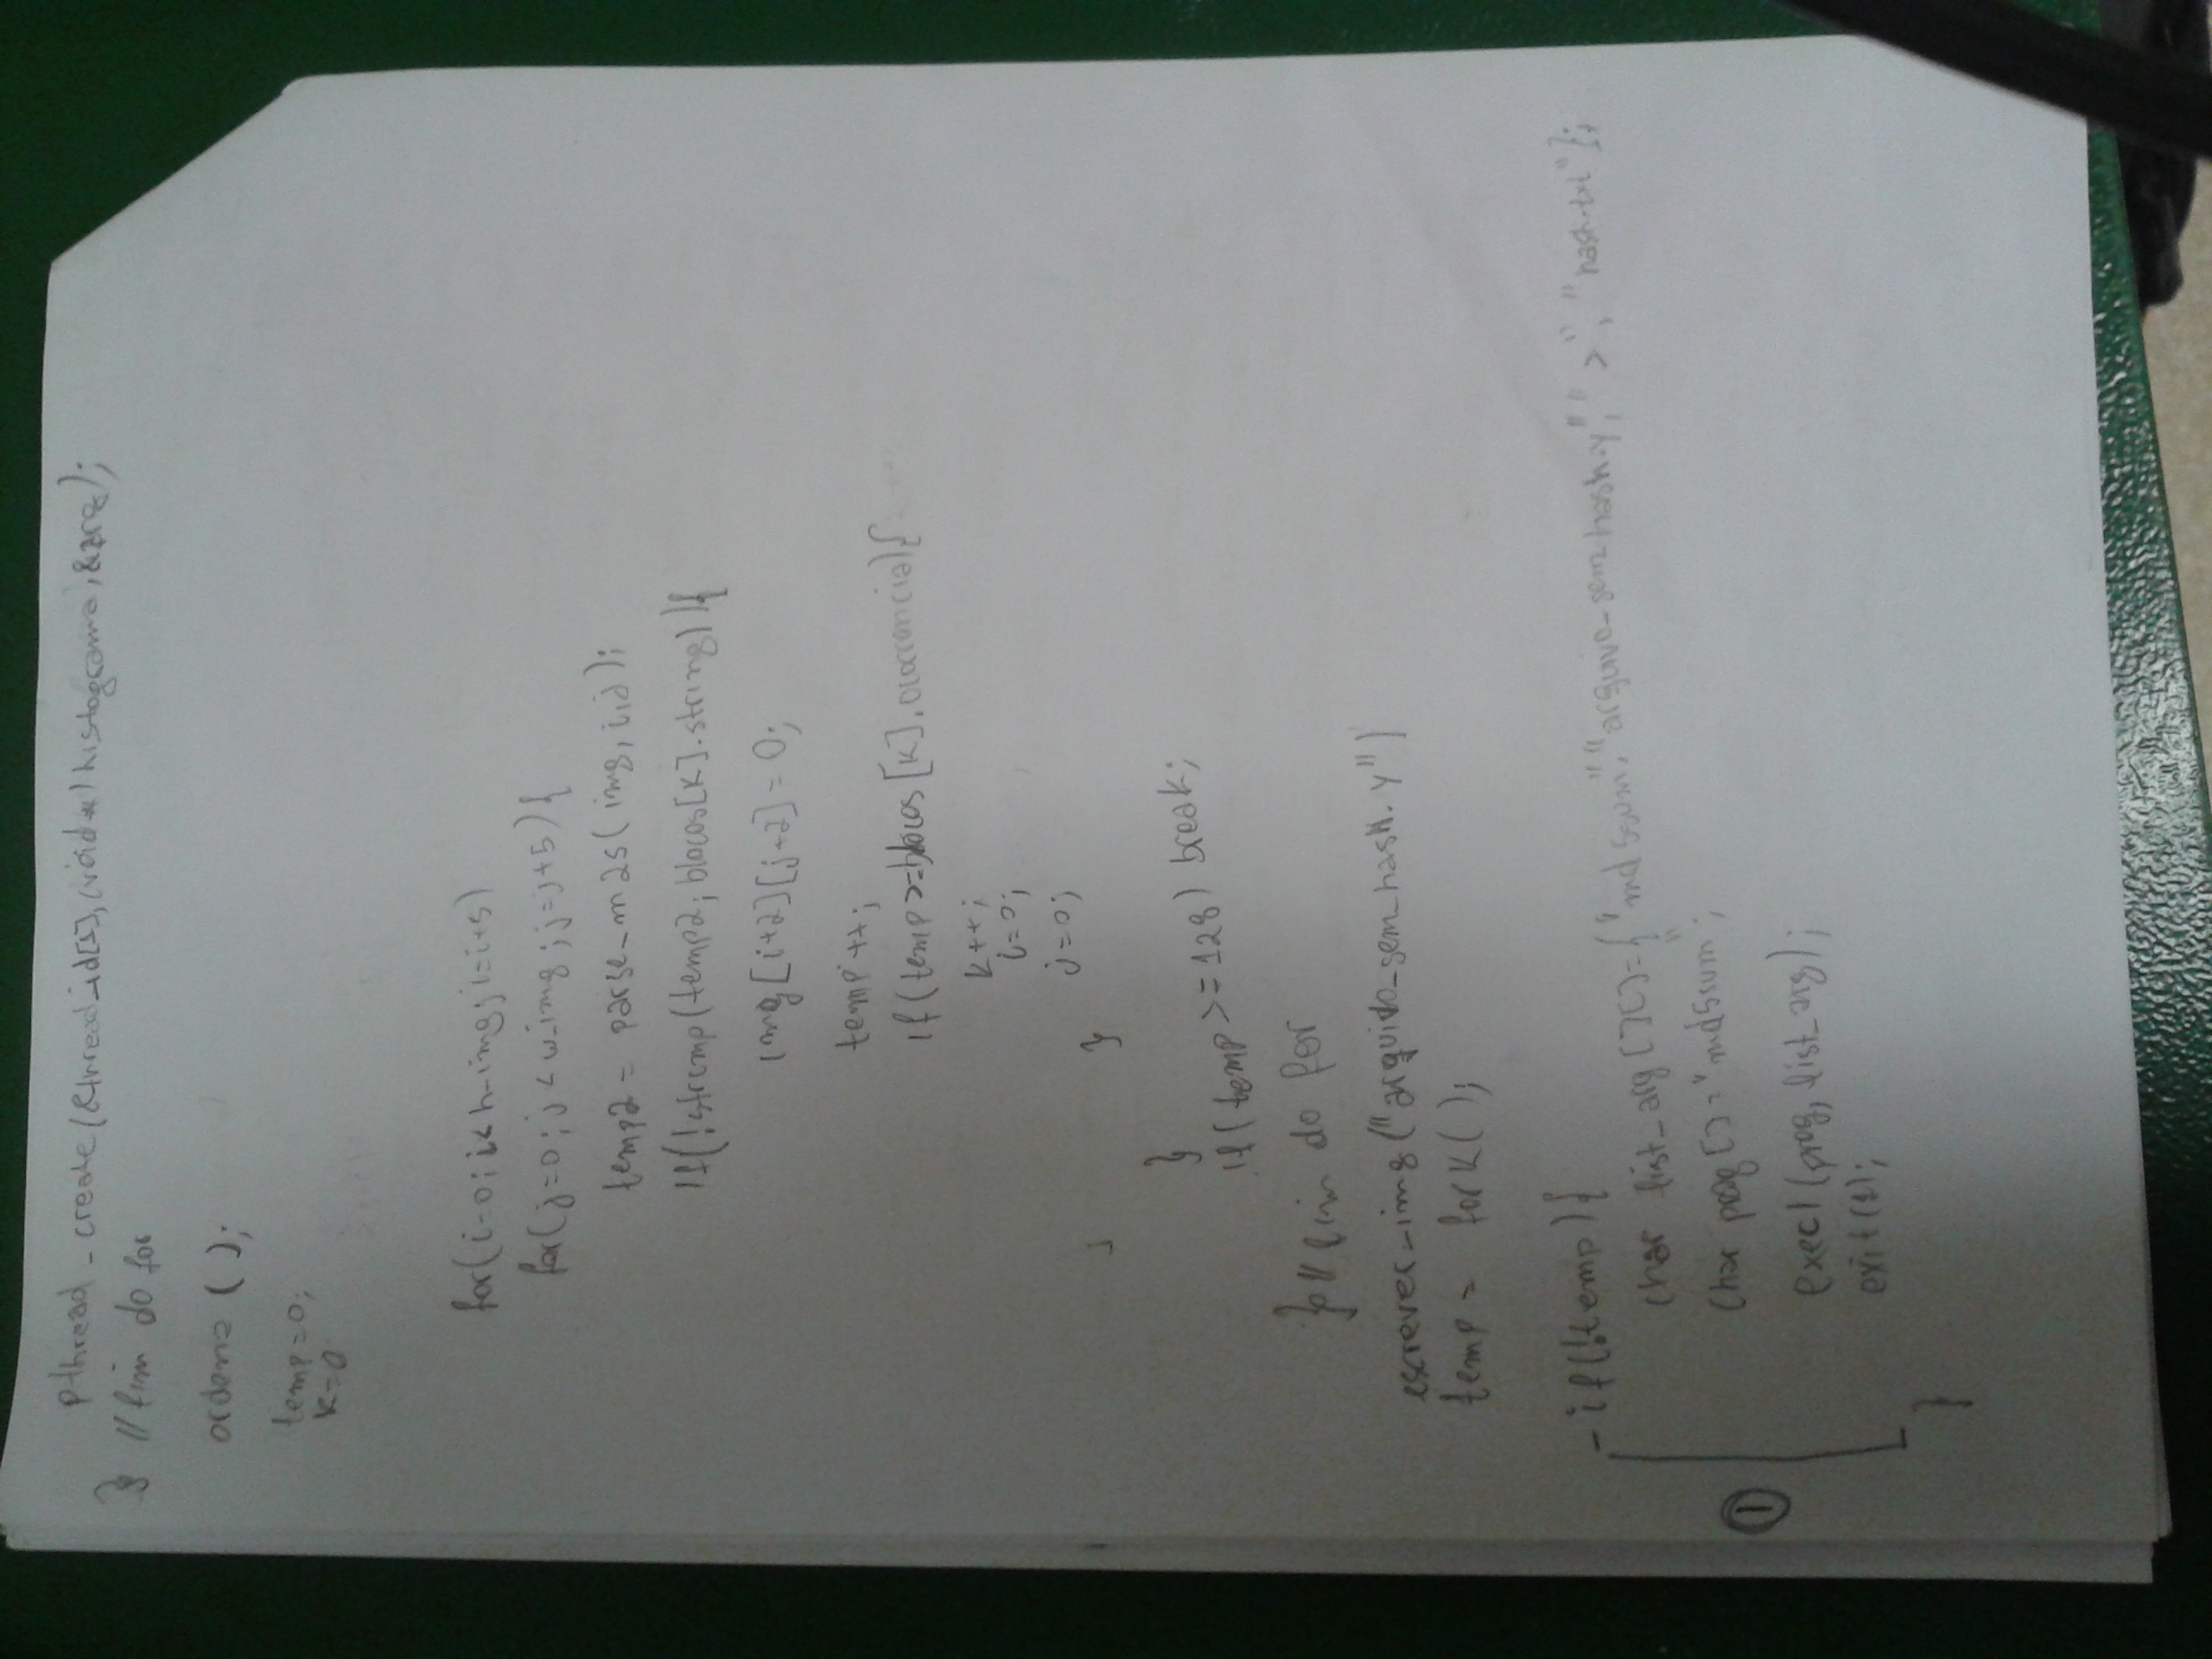 pthread_create(&thread_id[1],(void*)histograma,&arg);
} // fim do for
ordena ( );
temp=0;
k=0
for(i=0; i< h_img; i=i+5)
for(j=0; j < w_img ; j=j+5){
temp2 = parse_mas( img, i,j);
if(!strcmp(temp2; blocos[k].string)){
img[i+2][j+2] = 0;
temp++;
if(temp>=blocos[k].ocorrencia){
k++;
i=0;
j=0;
}
}
if( temp >= 128) break;
} // fim do for
escrever_img("arquivo_sem_hash.y")
temp = fork( );
-if(!temp){
char list_arg[][]={"md5sum","arquivo_sem_hash.y", ">", "hash.txt"};
char prog[]="md5sum";
①
execl(prog, list_arg);
exit(1);
}